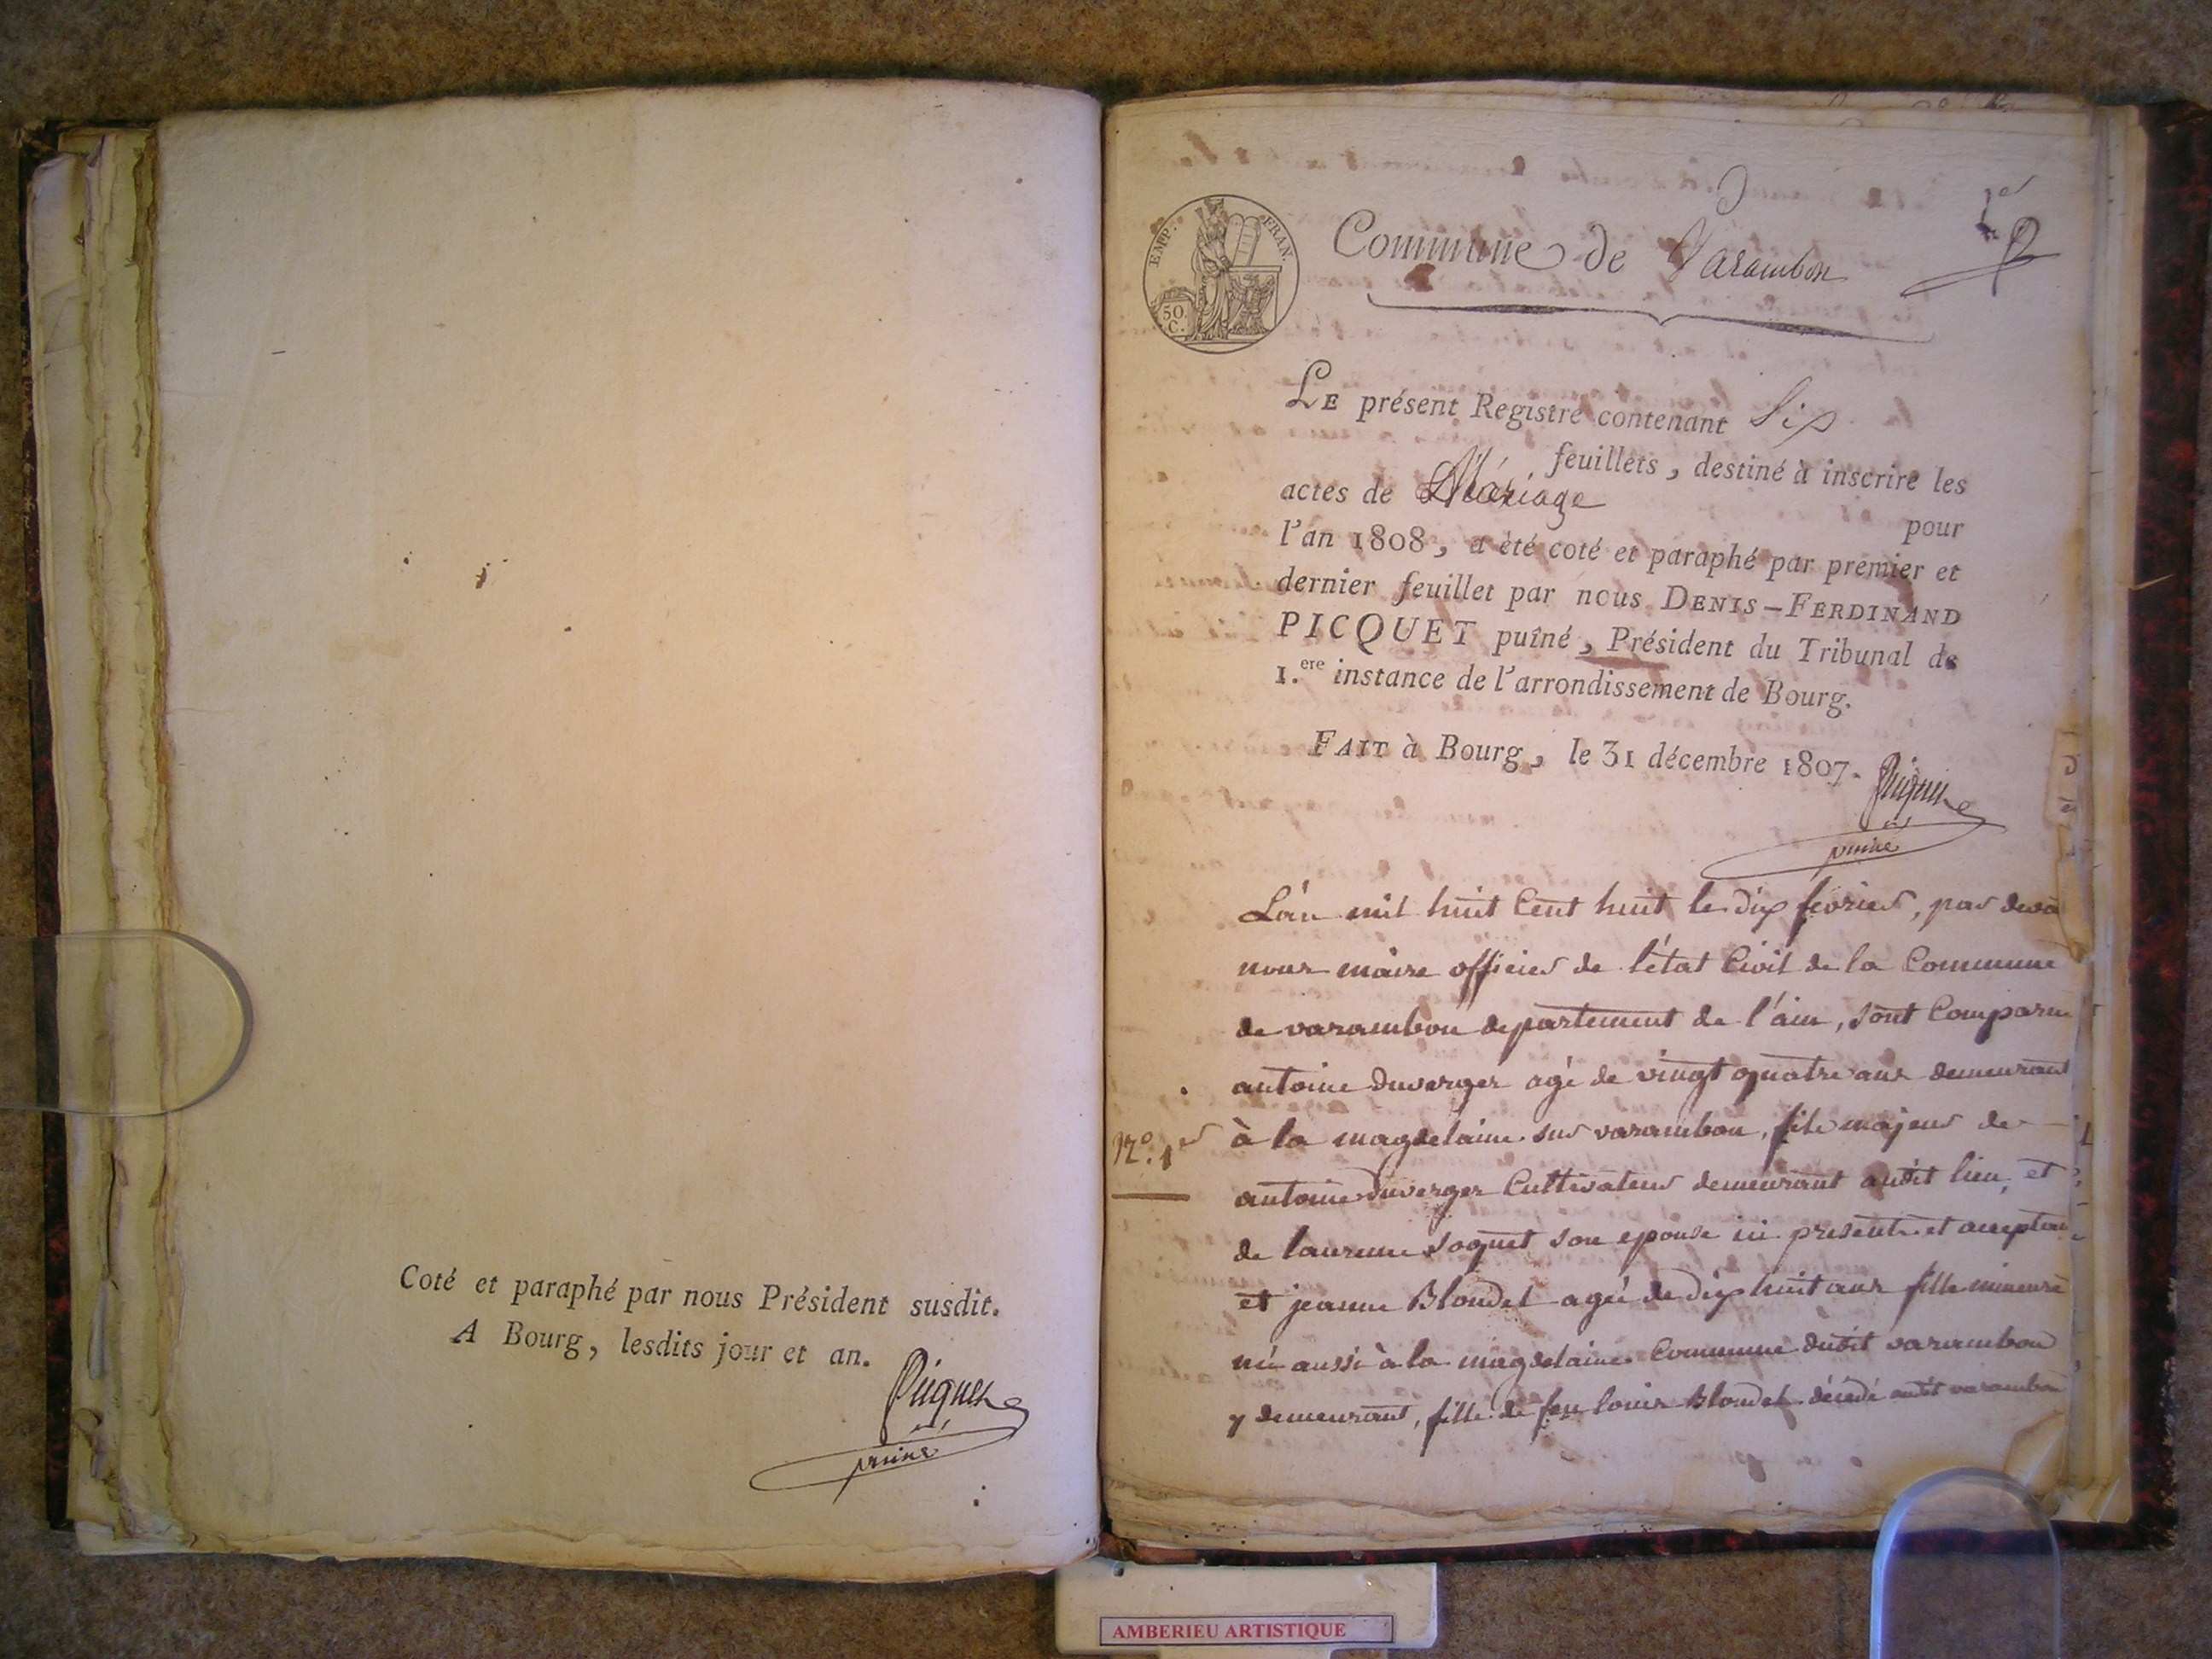 Coté et paraphé par nous Président susdit.
A Bourg, lesdits jour et an.
Picquet
puiné
1er
EMP. FRAN.
50. C.
Commune de Varambon
LE présent Registre contenant Six
feuillets, destiné à inscrire les
actes de Mariage pour
l'an 1808, a été coté et paraphé par premier et
dernier feuillet par nous DENIS-FERDINAND
PICQUET puîné, Président du Tribunal de
1.ere instance de l'arrondissement de Bourg.
FAIT à Bourg, le 31 décembre 1807.
Picquet
puiné
L'an mil huit Cent huit le dix fevrier, par deva
nous maire officier de l'état Civil de la Commune
de varambon departement de l'ain, sont Comparu
antoine Duverger agé de vingt quatre ans demeurant
N.º 1er
à la magdelaine sur varambon, fils majeur de
antoine Duverger Cultivateur demeurant audit lieu, et
de laurence soquet son epouse ici presente et acceptan
et jeanne Blondel agée de dix huit ans fille mineure
née aussi à la magdelaine Commune dudit varambon
y demeurant, fille de feu louis Blondel décédé audit varambon
AMBERIEU ARTISTIQUE